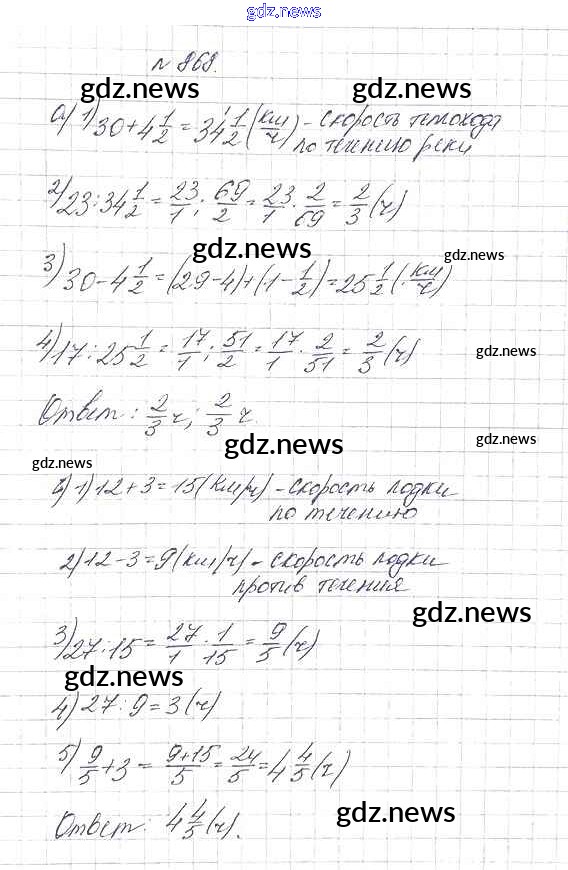 gdz.news
№ 868.
gdz.news gdz.news
а) 1) 30 + 4 1/2 = 34 1/2 (км/ч) - скорость теплохода
по течению реки
2) 23 : 34 1/2 = 23/1 : 69/2 = 23/1 · 2/69 = 2/3 (ч)
gdz.news gdz.news
3) 30 - 4 1/2 = (29 - 4) + (1 - 1/2) = 25 1/2 (км/ч)
4) 17 : 25 1/2 = 17/1 : 51/2 = 17/1 · 2/51 = 2/3 (ч)
gdz.news
Ответ: 2/3 ч; 2/3 ч.
gdz.news gdz.news
gdz.news
б) 1) 12 + 3 = 15 (км/ч) - скорость лодки
по течению
2) 12 - 3 = 9 (км/ч) - скорость лодки
против течения
gdz.news
3) 27 : 15 = 27/1 · 1/15 = 9/5 (ч)
gdz.news
4) 27 : 9 = 3 (ч)
5) 9/5 + 3 = 9+15/5 = 24/5 = 4 4/5 (ч)
gdz.news
Ответ: 4 4/5 (ч).